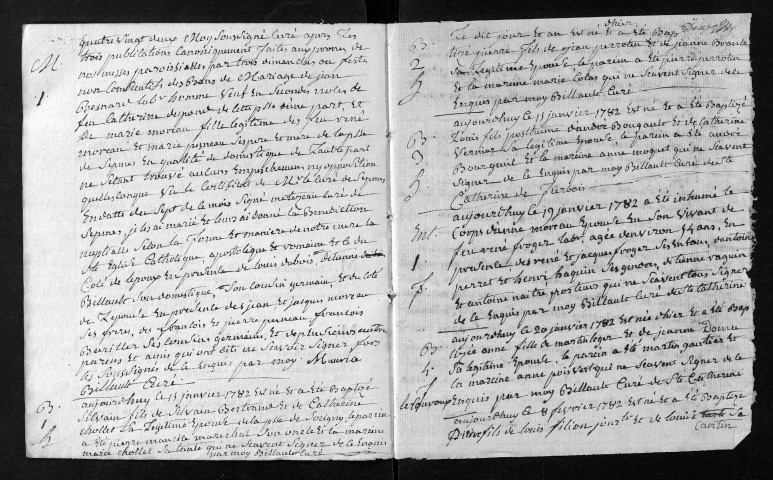 quatre vingt deux Moy soussigné curé apres les
trois publications canoniquement faites aux prones de
nos messes paroissialles par trois dimanches ou festes
non consécutifs des Bans de Mariage de jean
Besnare homme Veuf en secondes noces de
feu Catherine de cette psse d'une part, et
De marie moreau fille legitime de feu rené
moreau et marie juneau ses pere et mere de la psse
de Sepmes en qualité de domestique de l'autre part
ne s'étant trouvé aucuns Empeschemens ny opposition
quelleconque Vu le Certificat de Mr le curé de Sepmes
En datte du Sept de ce mois signé moreau curé de
Sepmes, je les ai marié et leur ai donné la Benediction
nuptialle selon la forme et maniere de notre mere la
Ste Eglise Catholique, apostolique et romaine et ce du
Côté de l'epoux en presence de louis dubois, étienne
Billault son domestique, son cousin germain, et du coté
de l'Epouse en presence des jean et jacques moreau
ses freres, des françois et pierre juneau françois
ses cousins germains, et de plusieurs autres
parens et amis qui ont dit ne scavoir signer fors
les Soussignes de ce Enquis par moy.
Billault Curé
M.
1
aujourdhuy 15 janvier 1782 est né et a été Baptizé
Silvain fils de Silvain Bertonne et de Catherine
chollet sa legitime Epouse de la psse de Sorigny, le parein
a été pierre marechal son oncle et la mareine
marie chollet sa tante qui ne scavent signer de ce Enquis
par moy Billault Curé
B.
1
hier
Le dit jour et an est né et a été bap
tizé pierre fils de jean perroten et de jeanne
Sa legitime Epouse le parein a été pierre perroten
et la mareine marie Colas qui ne scavent signer de ce
Enquis par moy Billault Curé
B.
2
aujourdhuy 15 janvier 1782 est né et a été Baptizé
Louis fils posthume d'andré Bougault et de Catherine
Vernier sa legitime Epouse, le parein a été andré
Bourgueil et la mareine anne moquet qui ne scavent
signer de ce Enquis par moy Billault Curé de Ste
Catherine de fierbois
B.
3
aujourdhuy 19 janvier 1782 a été inhumé le
Corps d'anne moreau Epouse en son vivant de
feu rené froger labr. agée d'environ 54 ans, En
presence, des rené et jacques froger ses Enfans, d'antoine
perret et henri haquin ses gendres, d'etienne vaquin
et antoine naitré porteurs qui ne scavent tous signer
de ce Enquis par moy Billault Curé de Ste Catherine
Ent.
1
aujourdhuy 20 janvier 1782 est née d'hier et a été bap
tizée anne fille de martin leger et de jeanne
Sa legitime Epouse, le parein a été martin gautier et
la mareine anne poisvert qui ne scavent signer de ce
Enquis par moy Billault Curé de Ste Catherine
B.
4.
aujourdhuy 8 fevrier 1782 est né et a été Baptizé
fils de louis filion jourlr. et de louise Sa
Cantin